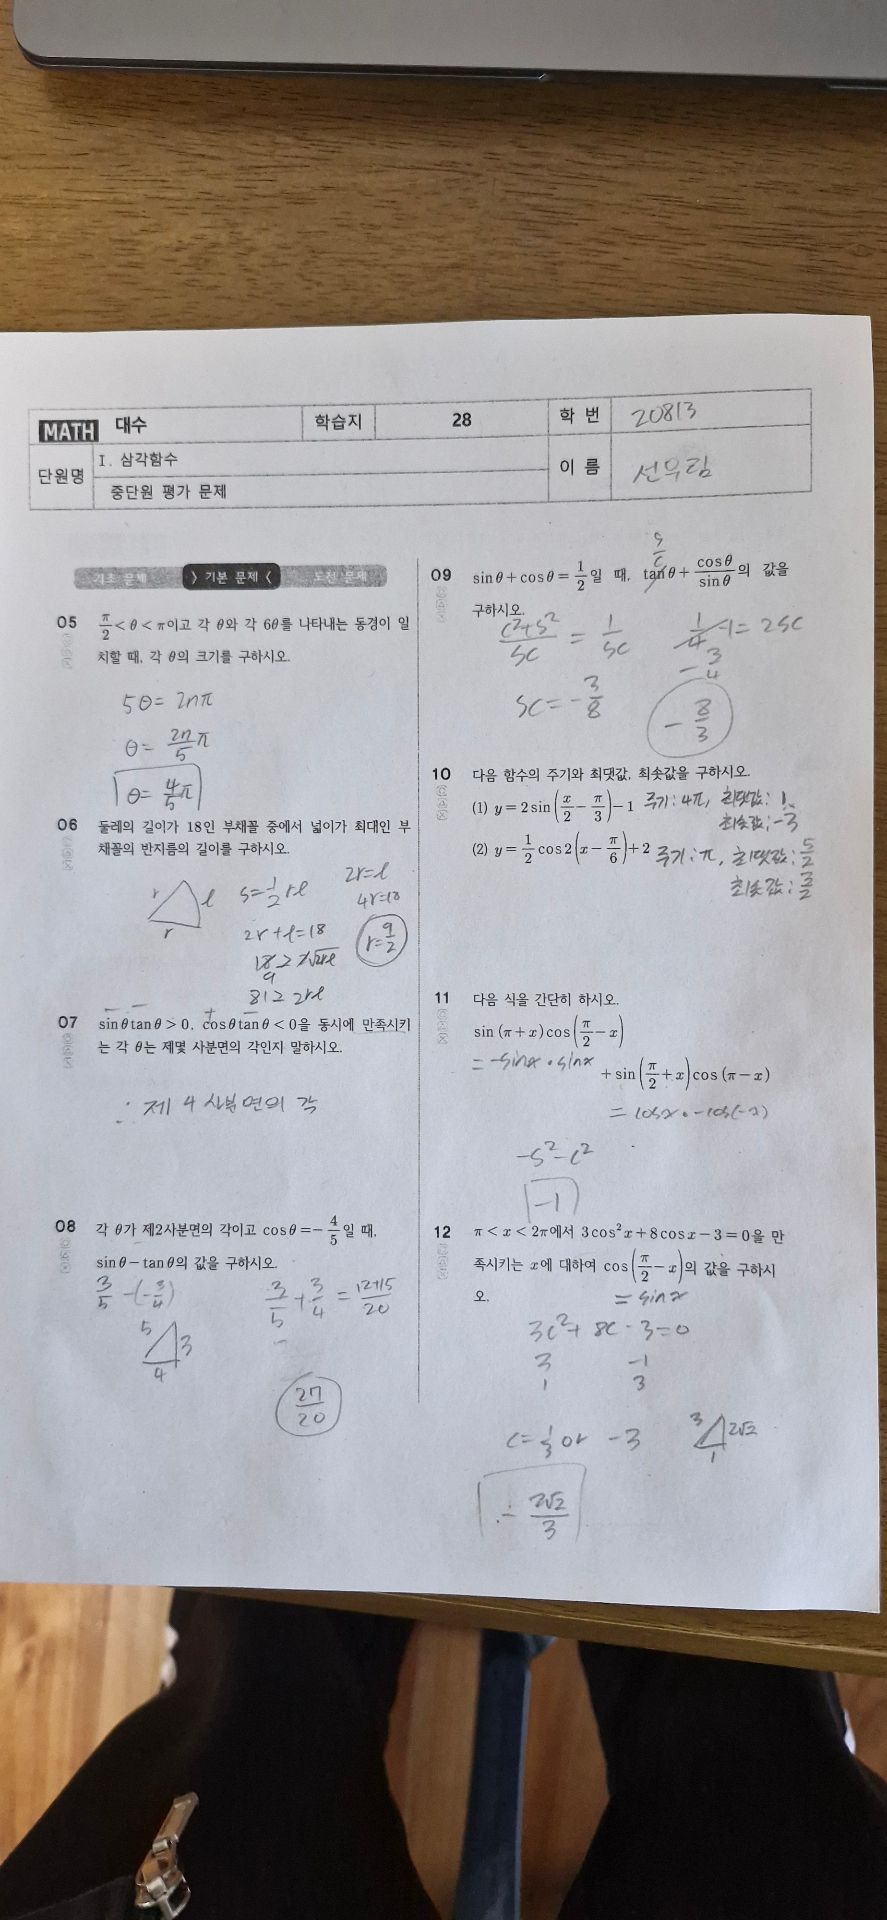 MATH 대수 학습지 28 학 번 20813
단원명 I. 삼각함수 이 름 선우림
중단원 평가 문제
기초 문제 > 기본 문제 < 도전 문제
05 π/2 < θ < π이고 각 θ와 각 6θ를 나타내는 동경이 일
치할 때, 각 θ의 크기를 구하시오.
5θ = 2nπ
θ = 2n/5 π
θ = 4/5 π
06 둘레의 길이가 18인 부채꼴 중에서 넓이가 최대인 부
채꼴의 반지름의 길이를 구하시오.
r l r
S = 1/2 rl
2r = l
4r = 18
2r + l = 18
r = 9/2
18 ≥ 2√2rl
9
81 ≥ 2rl
07 sinθtanθ > 0, cosθtanθ < 0을 동시에 만족시키
는 각 θ는 제몇 사분면의 각인지 말하시오.
∴ 제 4 사분면의 각
08 각 θ가 제2사분면의 각이고 cosθ = -4/5일 때,
sinθ - tanθ의 값을 구하시오.
3/5 - (-3/4) 3/5 + 3/4 = 12+15/20
5 3 4
27/20
09 sinθ + cosθ = 1/2일 때, tanθ + cosθ/sinθ의 값을
s/c
구하시오.
c²+s²/sc = 1/sc 1/4 - 1 = 2sc
-3/4
sc = -3/8
-8/3
10 다음 함수의 주기와 최댓값, 최솟값을 구하시오.
(1) y = 2sin(x/2 - π/3) - 1 주기: 4π, 최댓값: 1,
최솟값: -3
(2) y = 1/2 cos2(x - π/6) + 2 주기: π, 최댓값: 5/2
최솟값: 3/2
11 다음 식을 간단히 하시오.
sin(π+x)cos(π/2 - x)
= -sinx · sinx + sin(π/2 + x)cos(π-x)
= cosx · -cos(-x)
-s² - c²
-1
12 π < x < 2π에서 3cos²x + 8cosx - 3 = 0을 만
족시키는 x에 대하여 cos(π/2 - x)의 값을 구하시
오. = sinx
3c² + 8c - 3 = 0
3 -1
1 3
c = 1/3 or -3 3 2√2 1
∴ - 2√2/3